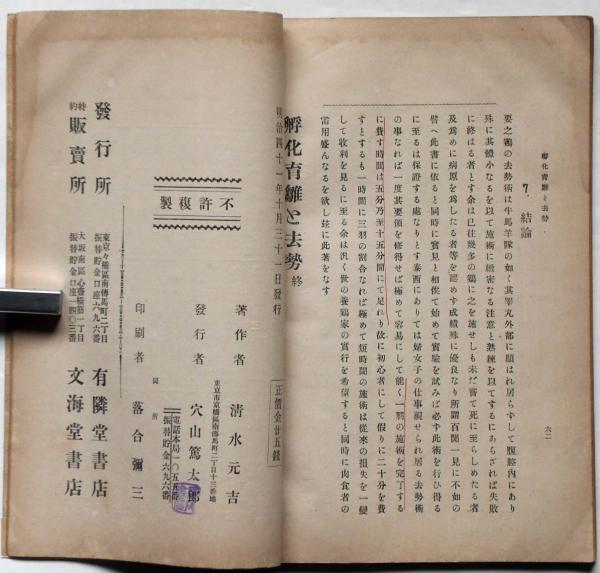 孵化育雛と去勢
六二
7. 結論
要之鷄の去勢術は牛馬羊豚の如く其睾丸外部に顯はれ居らずして腹膣内にあり
殊に其體小なるを以て施術に緻密なる注意と熟練を以てするにあらざれば失敗
に終はる者とす余は已往幾多の鷄に之を施せしも未だ嘗て死に至らしめたる者
及ぴ爲めに病原を爲したる者等を認めず成績殊に優良なり所謂百聞一見に不如の
譬へ此書に依ると同時に實見と相俟て始めて實驗を試みば必ず此術を行ひ得る
に至るは保證する處なりとす泰西にありては婦女子の仕事視せられ居る去勢術
の事なれば一度其要領を修得せば極めて容易にして能く一羽の施術を完了する
に費す時間は五分乃至十五分間にて足れり故に初心者にして假りに二十分を費
すとするも一時間に三羽の割合なれば極めて短時間の施術は從來の損失を一變
して收利を見るに至る余は汎く世の養鷄家の實行を希望すると同時に肉食者の
需用盛んなるを欲し並に此著をなす
孵化育雛と去勢 終
明治四十一年十月三十一日發行
正價金廿五錢
不許複製
著作者 清水元吉
東京市京橋區南傳馬町二丁目十三番地
發行者 穴山篤太郎
電話本局一〇五五番
振替貯金六九六番
同所
印刷者 落合彌三
發行所
東京々橋區南傳馬町二丁目
振替貯金口座六九六番
有隣堂書店
特約
販賣所
大坂南區心齋橋筋一丁目
振替貯金口座一四〇三番
文海堂書店